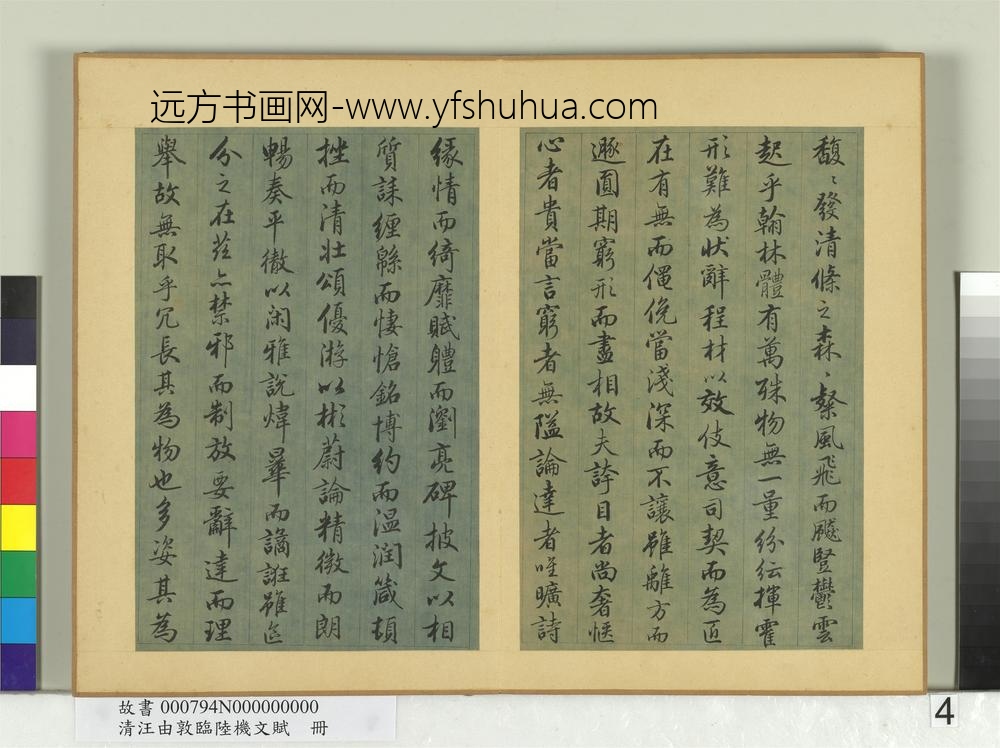 远方书画网-www.yfshuhua.com
馥〻發清條之森〻粲風飛而飈豎鬱雲
起乎翰林體有萬殊物無一量紛紜揮霍
形難為状辭程材以效伎意司契而為匠
在有無而僶俛當淺深而不讓雖離方而
遯圓期窮形而盡相故夫誇目者尚奢惬
心者貴當言窮者無隘論達者唯曠詩
緣情而綺靡賦體而瀏亮碑披文以相
質誄纏緜而悽愴銘博約而温润箴頓
挫而清壮頌優游以彬蔚論精微而朗
暢奏平徹以闲雅說煒曄而譎誑雖區
分之在茲亦禁邪而制放要辭達而理
舉故無取乎冗長其為物也多姿其為
故書 000794N000000000
清汪由敦臨陸機文賦 冊
4